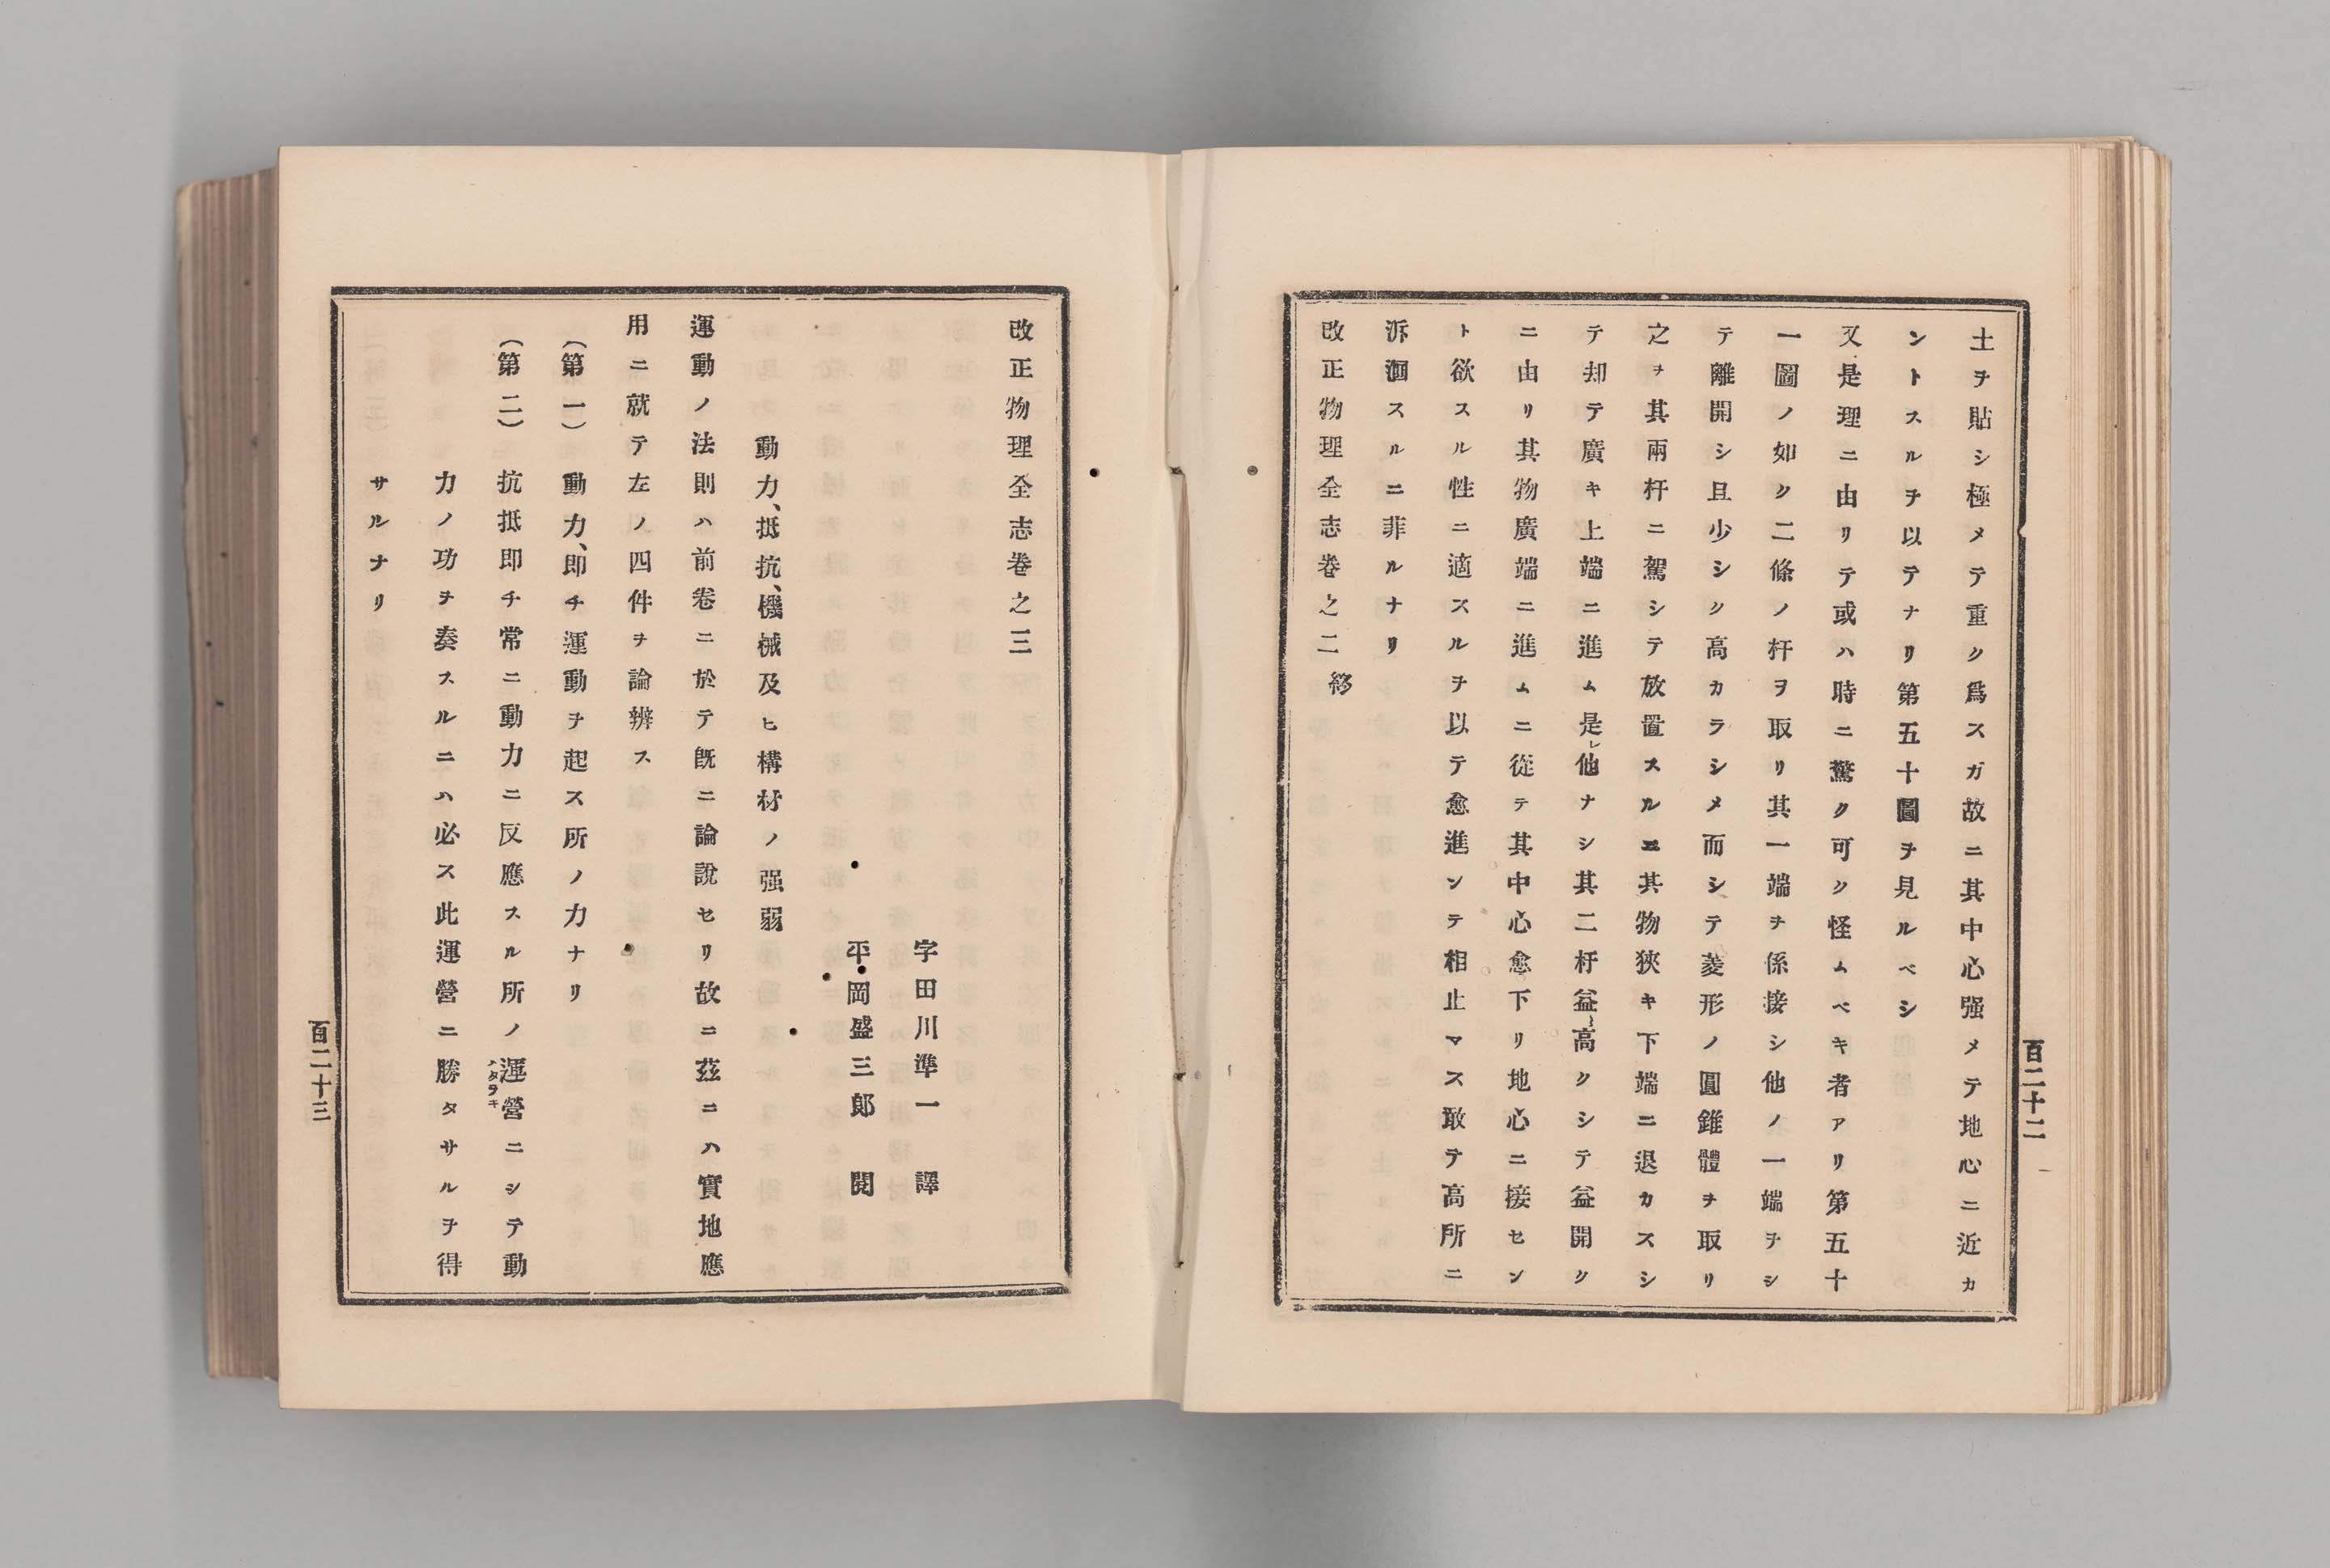 土ヲ貼シ極メテ重ク爲スガ故ニ其中心强メテ地心ニ近カ
ントスルヲ以テナリ第五十圖ヲ見ルベシ
又是理ニ由リテ或ハ時ニ驚ク可ク怪ムベキ者アリ第五十
一圖ノ如ク二條ノ杆ヲ取リ其一端ヲ係接シ他ノ一端ヲシ
テ離開シ且少シク高カラシメ而シテ菱形ノ圓錐體ヲ取リ
之ヲ其兩杆ニ駕シテ放置スルニ其物狹キ下端ニ退カスシ
テ却テ廣キ上端ニ進ム是レ他ナシ其二杆益〻高クシテ益開ク
ニ由リ其物廣端ニ進ムニ從テ其中心愈下リ地心ニ接セン
ト欲スル性ニ適スルヲ以テ愈進ンテ相止マス敢テ高所ニ
泝洄スルニ菲ルナリ
改正物理全志卷之二 終
百二十二
改正物理全志卷之三
宇田川準一 譯
平岡盛三郎 閱
動力、抵抗、機械及ヒ構材ノ强弱
運動ノ法則ハ前卷ニ於テ旣ニ論說セリ故ニ茲ニハ實地應
用ニ就テ左ノ四件ヲ論辨ス
(第一) 動力、即チ運動ヲ起ス所ノ力ナリ
(第二) 抗抵即チ常ニ動力ニ反應スル所ノ運營ニシテ動
ハタラキ
力ノ功ヲ奏スルニハ必ス此運營ニ勝タサルヲ得
サルナリ
百二十三